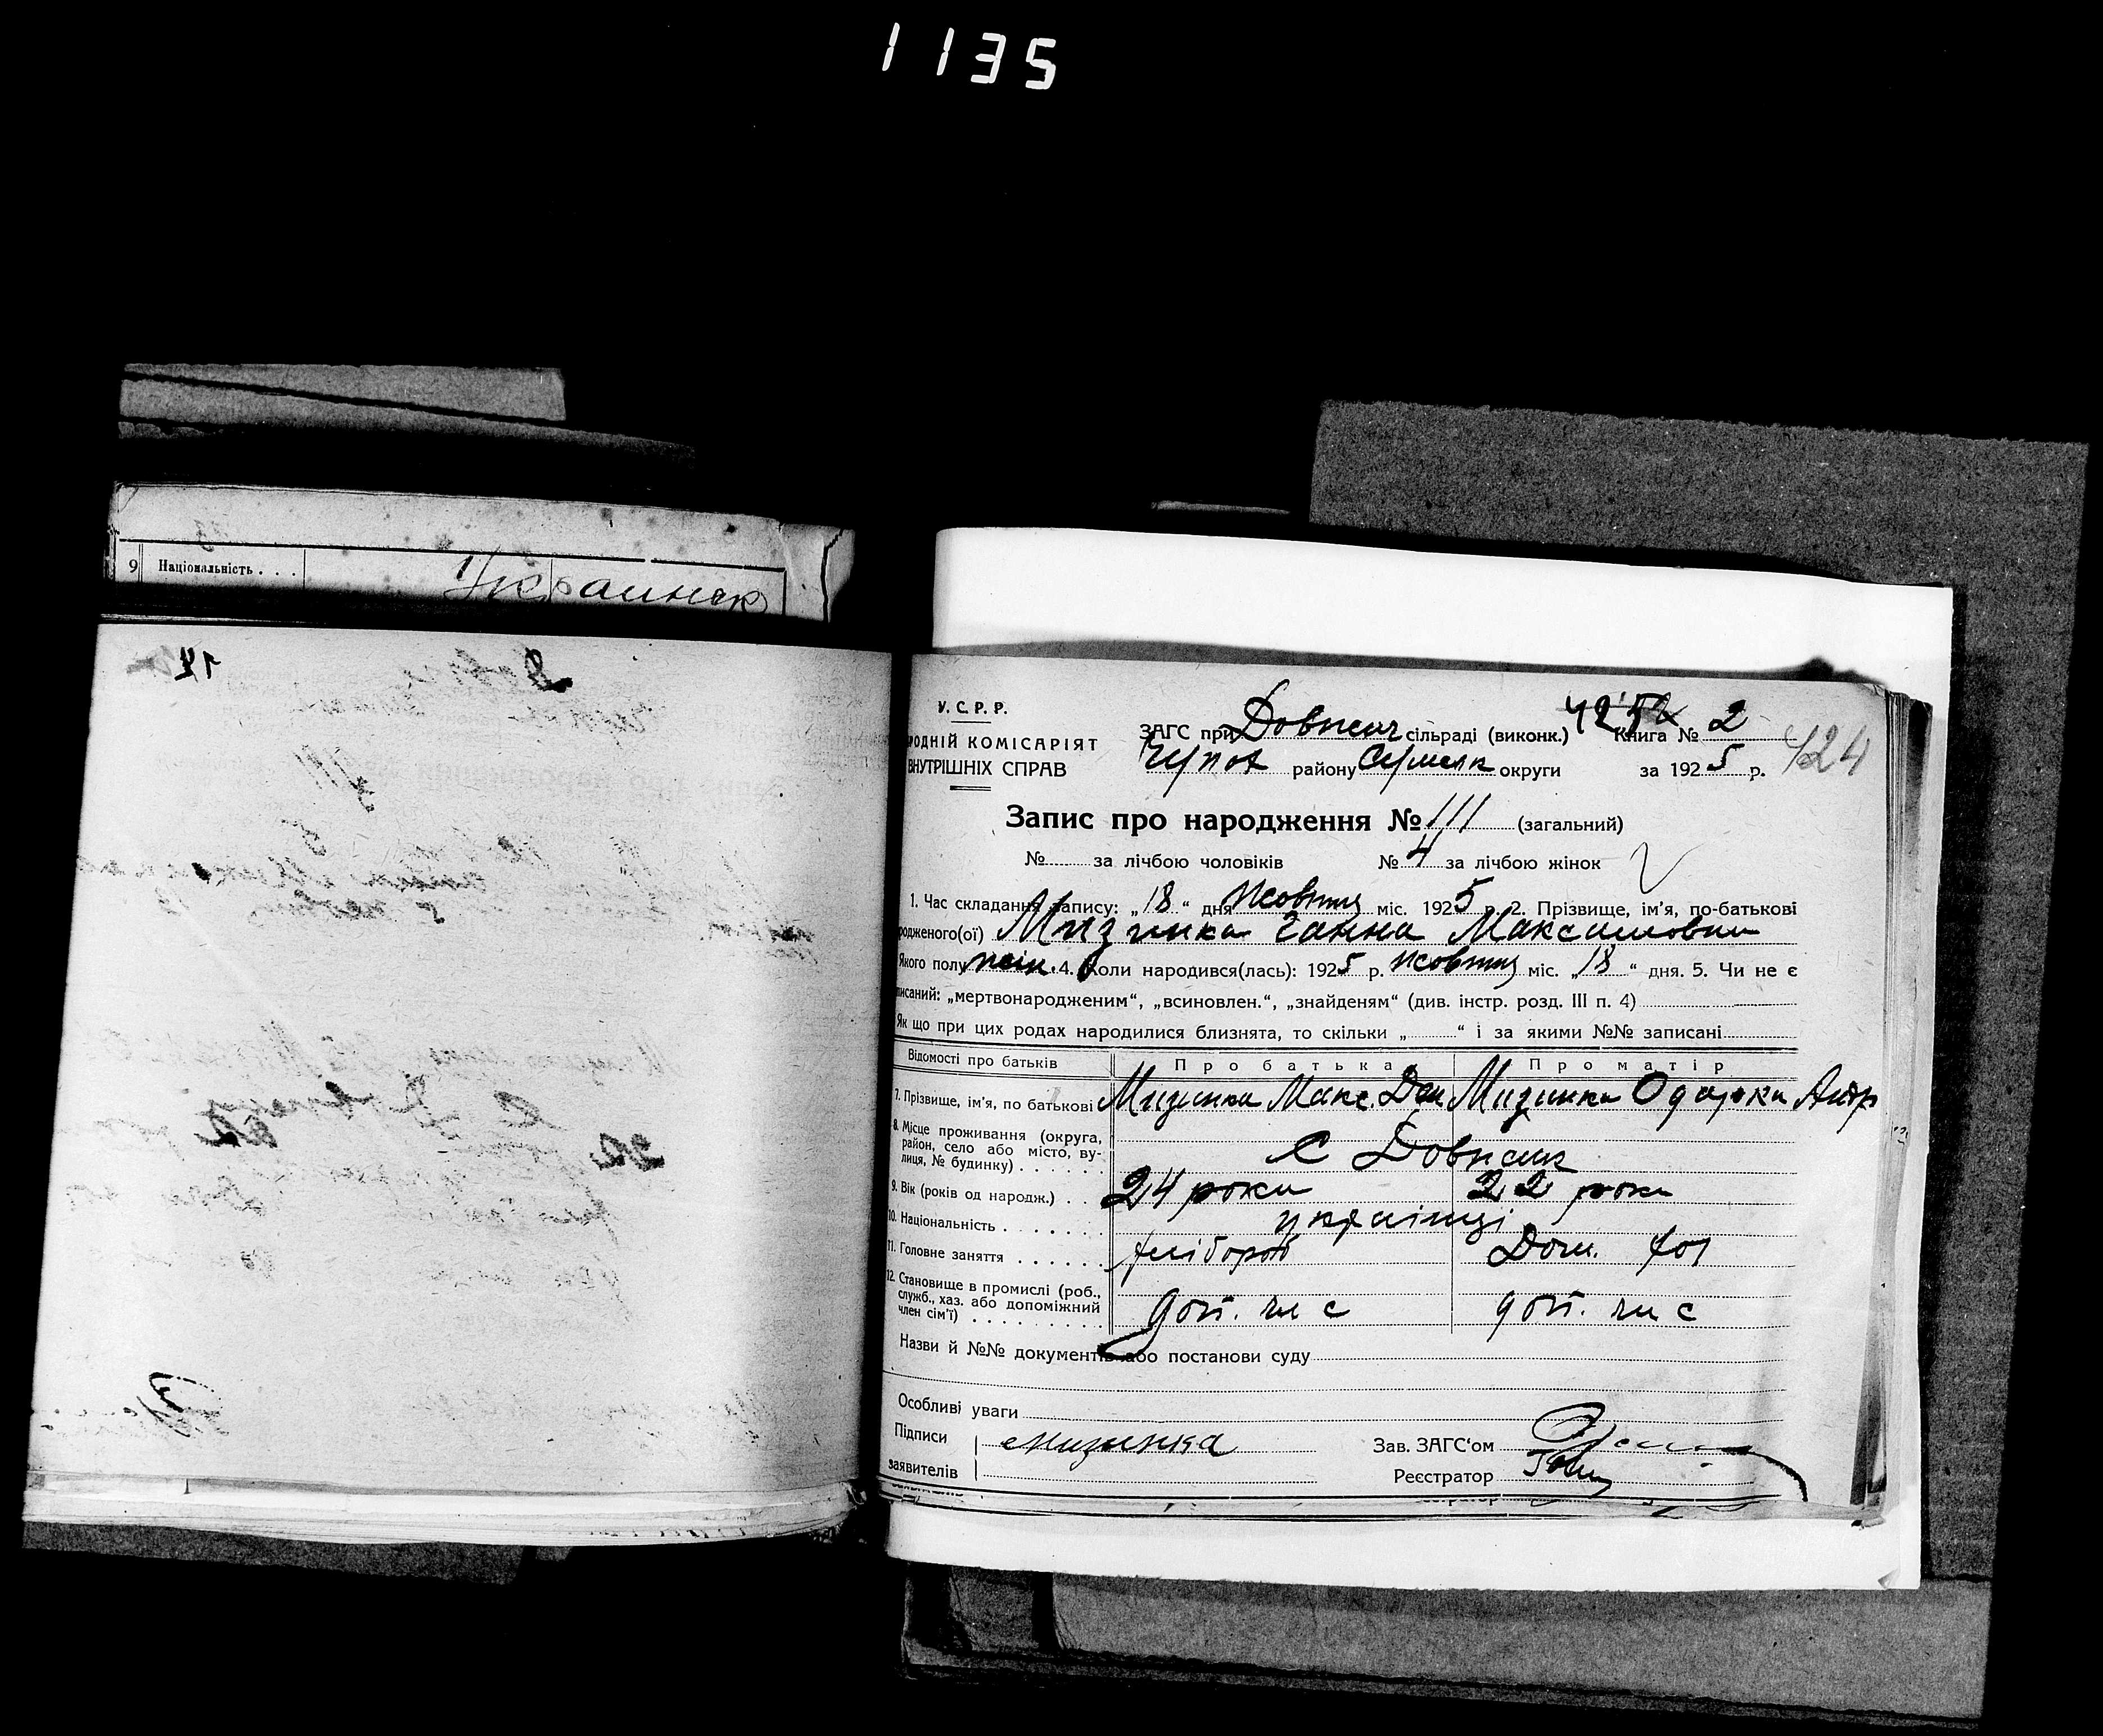 1135
9 Національність . . . Украинск
У. С. Р. Р.
РОДНІЙ КОМІСАРІЯТ
ВНУТРІШНІХ СПРАВ
ЗАГС при Довжич сільраді (виконк.) Книга № 2
424
Чупов району Сумськ округи за 1925 р.
Запис про народження № 111 (загальний)
№ за лічбою чоловіків № 4 за лічбою жінок
1. Час складання запису: „18“ дня Жовтня міс. 1925 р. 2. Прізвище, ім'я, по-батькові
родженого(ої) Мизинка Ганна Максимовна
Якого полу жін. 4. Коли народився(лась): 1925 р. жовтня міс. „18“ дня. 5. Чи не є
писаний: „мертвонародженим“, „всиновлен.“, „знайденям“ (див. інстр. розд. III п. 4)
Як що при цих родах народилися близнята, то скільки „ “ і за якими №№ записані
Відомості про батьків Про батька Про матір
7. Прізвище, ім'я, по батькові Мизинка Макс. Дан Мизинка Одарка Андр
8. Місце проживання (округа,
район, село або місто, ву-
лиця, № будинку) . . . . . С Довжик
9. Вік (років од народж.) . . 24 роки 22 роки
10. Національність . . . . . . українці
11. Головне заняття . . . . . . хлібороб Дом. хоз
12. Становище в промислі (роб.,
служб., хаз. або допоміжний
член сім'ї) . . . . . . . . . доп. чл с доп. чл с
Назви й №№ документів або постанови суду
Особливі уваги
Підписи
заявителів
Мизинка
Зав. ЗАГС'ом
Реєстратор